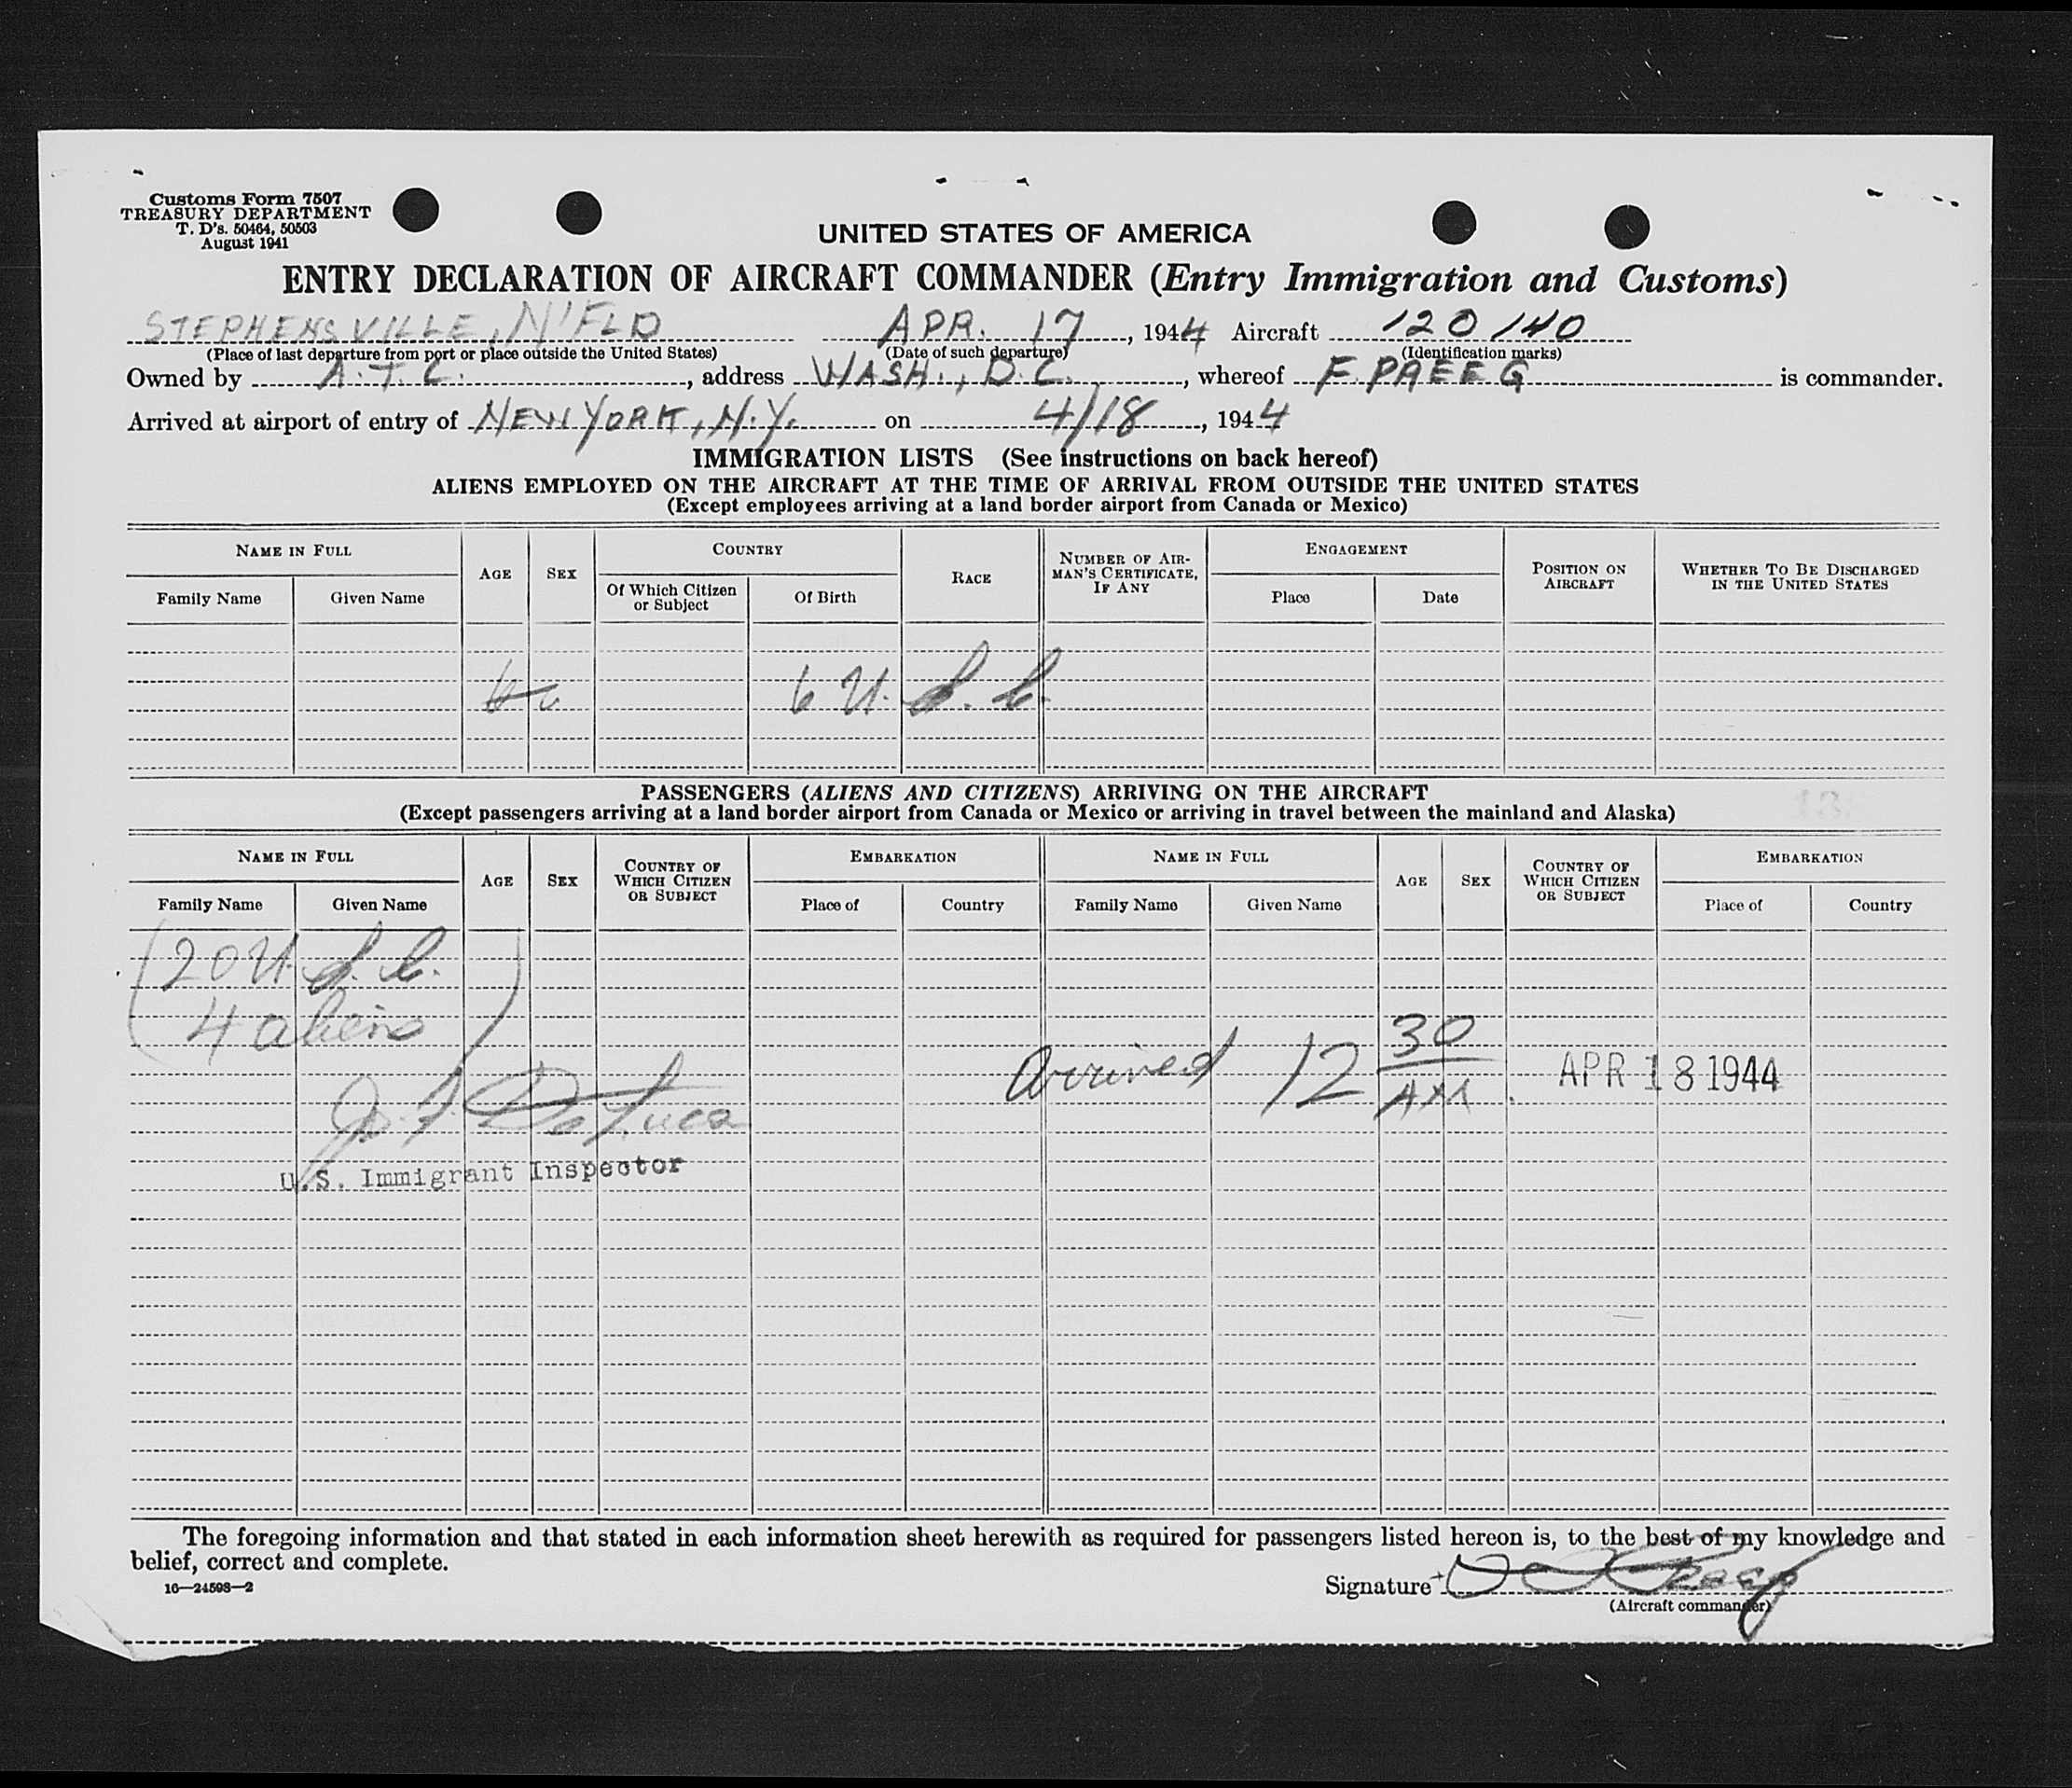 Customs Form 7507
TREASURY DEPARTMENT
T. D's. 50464, 50503
August 1941
UNITED STATES OF AMERICA
ENTRY DECLARATION OF AIRCRAFT COMMANDER (Entry Immigration and Customs)
STEPHENSVILLE, N'FLD APR. 17, 1944 Aircraft 120140
(Place of last departure from port or place outside the United States) (Date of such departure) (Identification marks)
Owned by A.T.C., address WASH., D.C., whereof F. PAEEG is commander.
Arrived at airport of entry of NEW YORK, N.Y. on 4/18, 1944
IMMIGRATION LISTS (See instructions on back hereof)
ALIENS EMPLOYED ON THE AIRCRAFT AT THE TIME OF ARRIVAL FROM OUTSIDE THE UNITED STATES
(Except employees arriving at a land border airport from Canada or Mexico)
NAME IN FULL AGE SEX COUNTRY RACE NUMBER OF AIRMAN'S CERTIFICATE, IF ANY ENGAGEMENT POSITION ON AIRCRAFT WHETHER TO BE DISCHARGED IN THE UNITED STATES
Family Name Given Name Of Which Citizen or Subject Of Birth Place Date
6 U.S.C.
PASSENGERS (ALIENS AND CITIZENS) ARRIVING ON THE AIRCRAFT
(Except passengers arriving at a land border airport from Canada or Mexico or arriving in travel between the mainland and Alaska)
NAME IN FULL AGE SEX COUNTRY OF WHICH CITIZEN OR SUBJECT EMBARKATION NAME IN FULL AGE SEX COUNTRY OF WHICH CITIZEN OR SUBJECT EMBARKATION
Family Name Given Name Place of Country Family Name Given Name Place of Country
(20 U.S.C.
4 aliens)
Arrived 12 30 AM. APR 18 1944
J. F. DeLuca
U.S. Immigrant Inspector
The foregoing information and that stated in each information sheet herewith as required for passengers listed hereon is, to the best of my knowledge and
belief, correct and complete.
16—24598—2
Signature
(Aircraft commander)